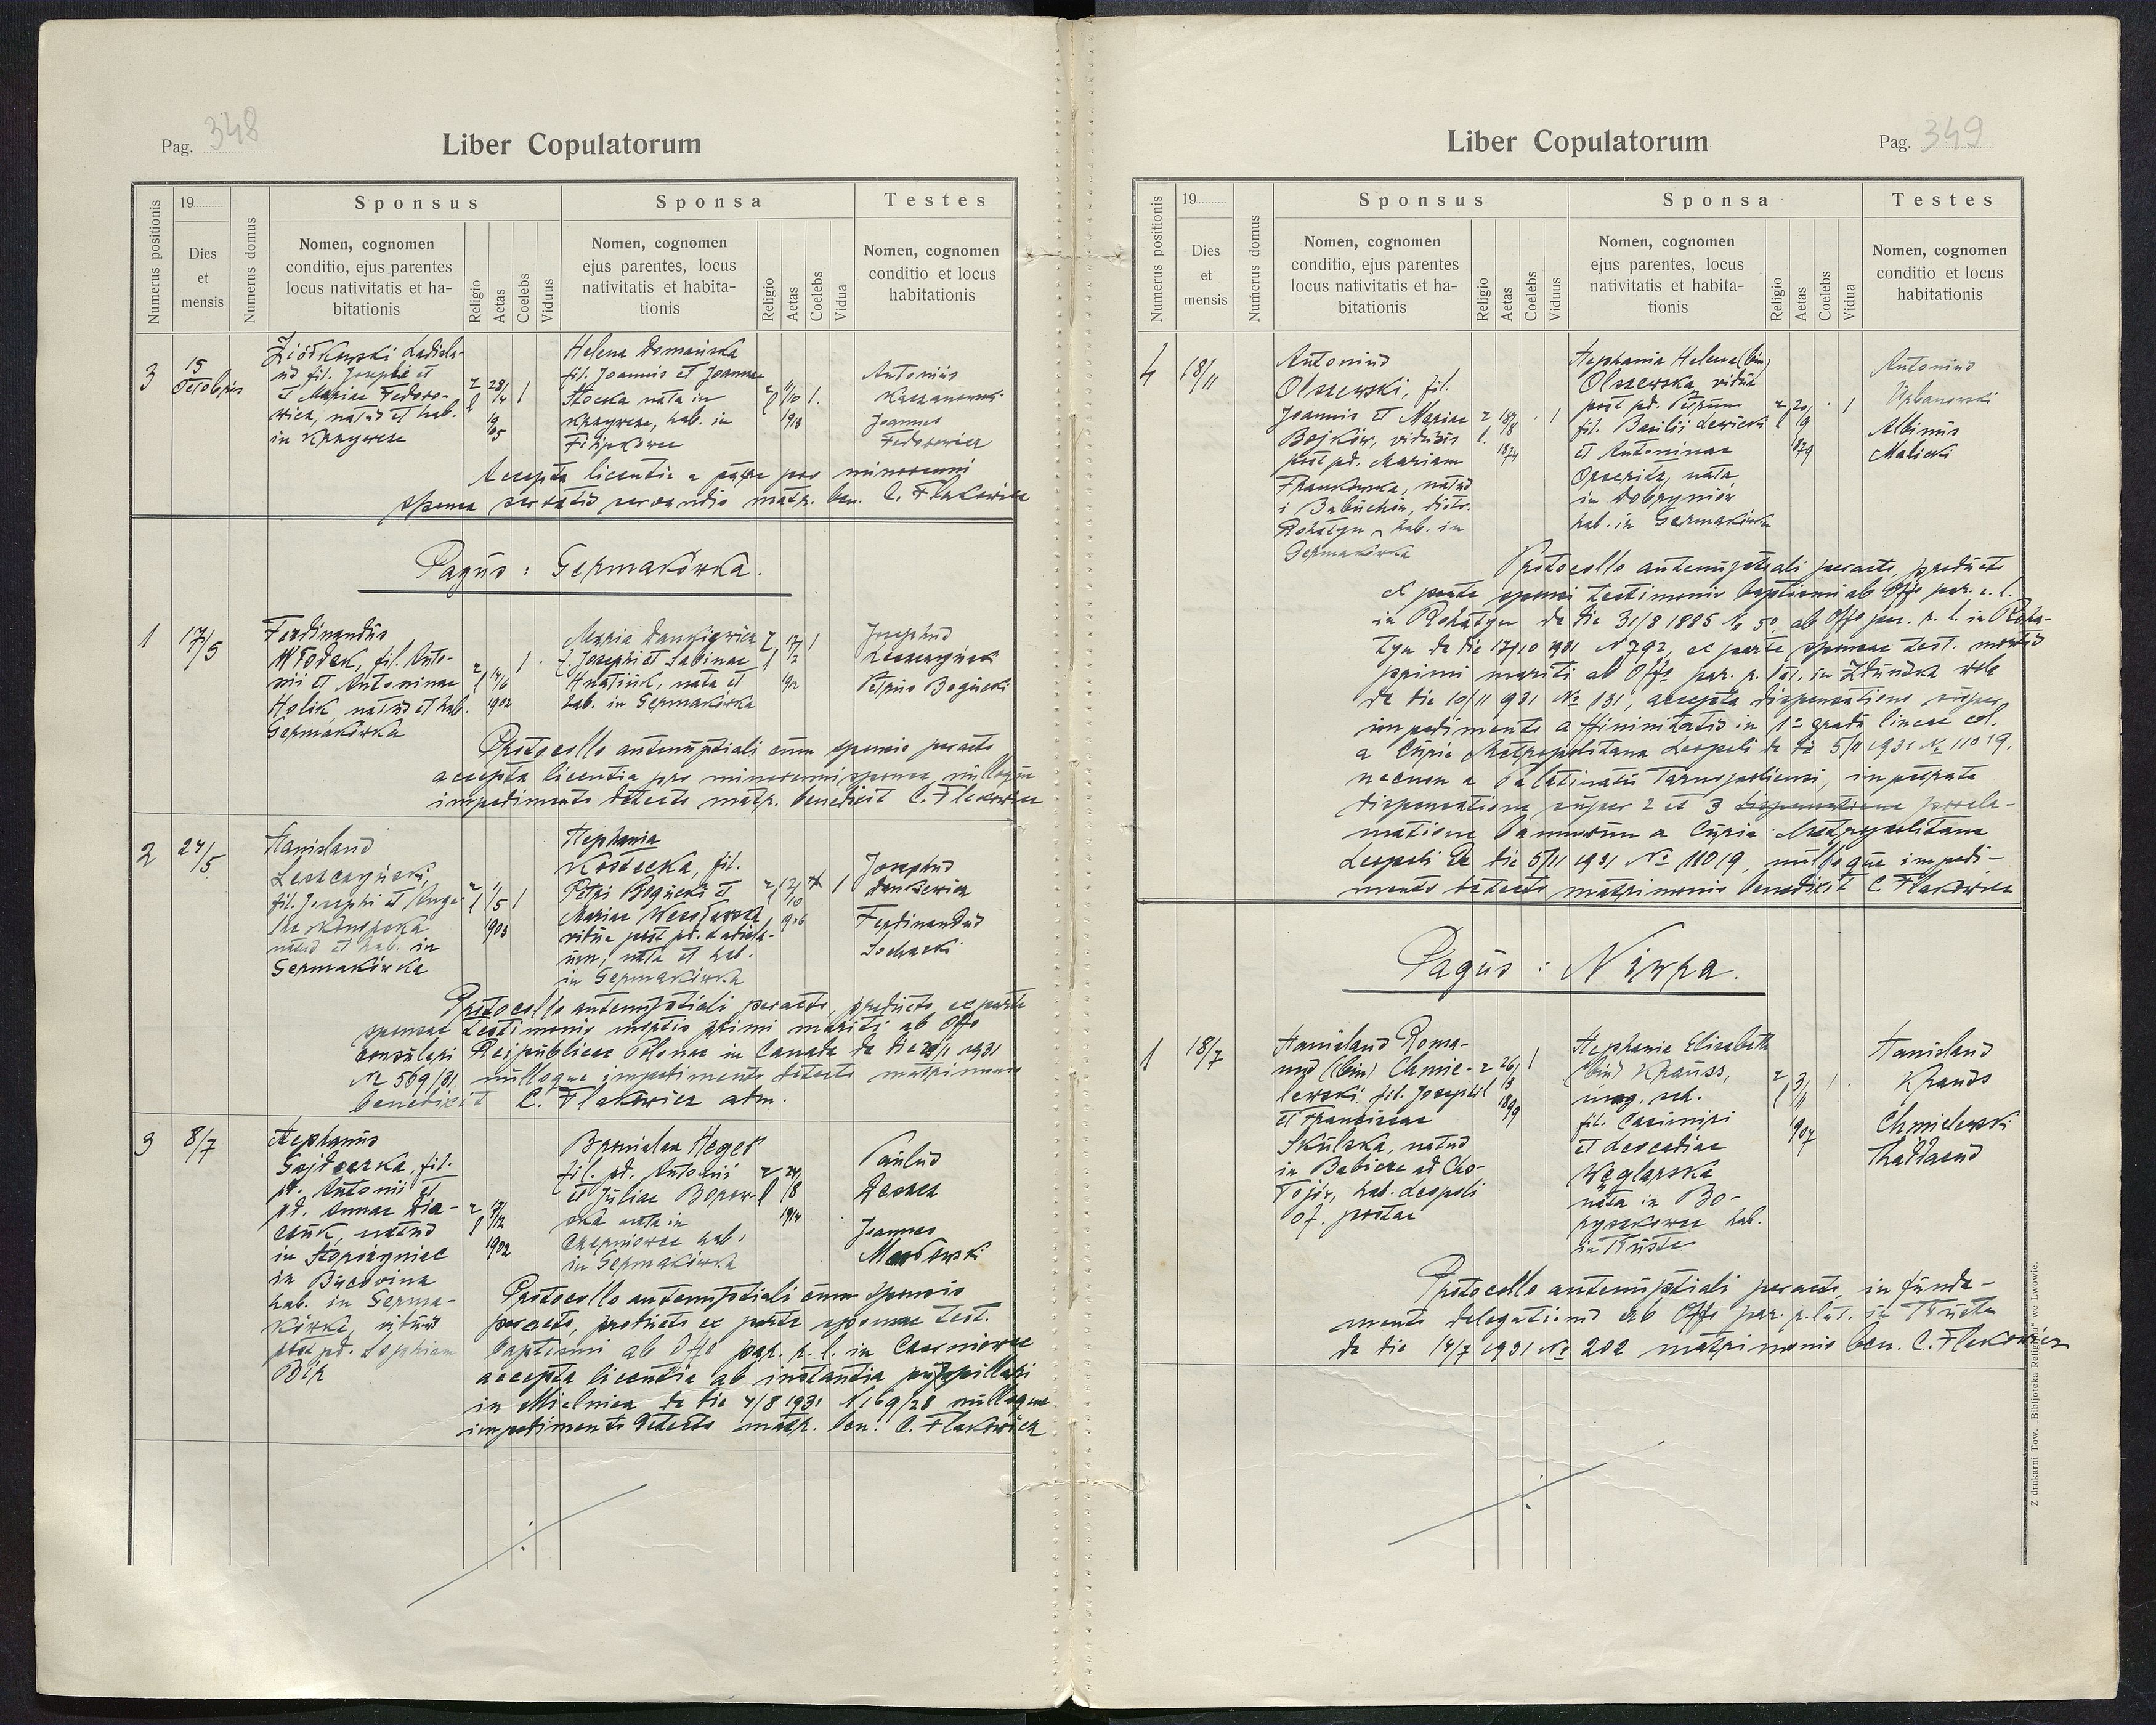 Pag. 348
Liber Copulatorum
Numerus positionis
19
Dies
et
mensis
Numerus domus
Sponsus
Nomen, cognomen
conditio, ejus parentes
locus nativitatis et ha-
bitationis
Religio
Aetas
Coelebs
Viduus
Sponsa
Nomen, cognomen
ejus parentes, locus
nativitatis et habita-
tionis
Religio
Aetas
Coelebs
Vidua
Testes
Nomen, cognomen
conditio et locus
habitationis
3
15
Octobris
Ziółkowski Ladisla-
us fil. Josephi et
et Mariae Fedoro-
wicz, natus et hab.
in Krzywcze
r l 28/4 1905 1
Helena Domańska
fil. Joannis et Joannae
Stocka nata in
Krzywcze, hab. in
Filipkowce
r l 11/10 1913 1
Antonius
Kaczanowski
Joannes
Fedorowicz
Accepta licentia a patre pro minorenni
sponsa servatis servandis matr. ben. C. Flakowicz
Pagus: Germakówka.
1
17/5
Ferdinandus
Włodek, fil. Anto-
nii et Antoninae
Holik, natus et hab.
Germakówka
r l 14/6 1902 1
Maria Dankiewicz
f. Josephi et Sabinae
Hnatiuk, nata et
hab. in Germakówka
Josephus
Leszczyński
Petrus Bogucki
Protocollo antenuptiali cum sponsis peracto
accepta licentia pro minorenni sponsa, nulloque
impedimento detecto matr. benedixit C. Flakowicz
2
24/5
Stanislaus
Leszczyński,
fil. Josephi et
natus et hab. in
Germakówka
r l 11/5 1903 1
Stephania
Kostecka, fil.
Petri Bogucki et
Mariae Wesołowska
vidua post pd. Ladisla-
um, nata et hab.
in Germakówka
r l 12/10 1906 1
Josephus
Dankiewicz
Ferdinandus
Sochacki
Protocollo antenuptiali peracto, producto ex parte
sponsae testimonio mortis primi mariti ab Offo
consulari Reipublicae Polonae in Canada de die 29/1 1931
№ 569/31. nulloque impedimento detecto matrimonio
benedixit C. Flakowicz adm.
3
8/7
Stephanus
Gajdeczka, fil.
pd. Antonii et
pd. Annae Dia-
czuk, natus
in Storożyniec
in Bucovina
hab. in Germa-
kówka, viduus
post pd. Sophiam
Bik
r l 17/12 1902
Bronislaa Heger
fil. pd. Antonii
et Juliae Borow-
ska nata in
Czerniowce hab.
in Germakówka
r l 24/8 1914
Paulus
Deszcz
Joannes
Masłowski
Protocollo antenuptiali cum sponsis
peracto, producto ex parte sponsae test.
baptismi ab Offo par. r. l. in Czerniowce
accepta licentia ab instantia puppillari
in Mielnica de die 4/8 1931 N. 69/28 nulloque
impedimento detecto matr. ben. C. Flakowicz
Liber Copulatorum
Pag. 349
Numerus positionis
19
Dies
et
mensis
Numerus domus
Sponsus
Nomen, cognomen
conditio, ejus parentes
locus nativitatis et ha-
bitationis
Religio
Aetas
Coelebs
Viduus
Sponsa
Nomen, cognomen
ejus parentes, locus
nativitatis et habita-
tionis
Religio
Aetas
Coelebs
Vidua
Testes
Nomen, cognomen
conditio et locus
habitationis
4
18/11
Antonius
Olszewski, fil.
Joannis et Mariae
Bojków, viduus
post pd. Mariam
Frankowska, natus
i Babuchów, distr.
Rohatyn, hab. in
Germakówka
r l. 18/8 1874 1
Stephania Helena (bin)
Olszewska, vidua
post pd. Petrum
fil. Basilii Lewicki
et Antoninae
nata
in Dobryniów
hab. in Germakówka
r l 20/9 1879 1
Antonius
Urbanowski
Albinus
Malicki
Protocollo antenuptiali peracto, producto
ex parte sponsi testimonio baptismi ab Offo par. r. l.
in Rohatyn de die 31/8 1885 № 50 ab Offo par. r. l. in Roha-
tyn de die 17/10 1931 N 792, ex parte sponsae test. mortis
primi mariti ab Offo par. r. lat. in Zduńska wola
de die 10/11 931 № 131, accepta dispensatione super
impedimento affinitatis in 1º gradu lineae col.
a Curia Metropolitana Leopoli de die 5/11 1931 № 11019.
necnon a Palatinatu Tarnopoliensi, impetrata
dispensatione super 2 et 3 dispensatione procla-
matione bannorum a Curia Metropolitana
Leopoli de die 5/11 1931 № 11019, nulloque impedi-
mento detecto matrimonio benedixit C. Flakowicz
Pagus: Niwra.
1
18/7
Stanislaus Roma-
nus (bin) Chmie-
lewski, fil. Josephi
et Franciscae
Skulska, natus
in Babicze ad Cho-
tojów, hab. Leopoli
of. postae
r l 26/3 1899 1
Stephania Elisabeth
(bin) Krauss,
mag. sch.
fil. Casimiri
et Leocadiae
Węglarska
nata in Bo-
ryszkowce hab.
in Trusta
r l 3/11 1907 1
Stanislaus
Krauss
Chmielewski
Thaddaeus
Protocollo antenuptiali peracto, in funda-
mento delegationis ab Offo par. r. lat. in Trusta
de die 14/7 1931 № 202 matrimonio ben. C. Flakowicz
Z drukarni Tow. „Bibljoteka Religijna" we Lwowie.